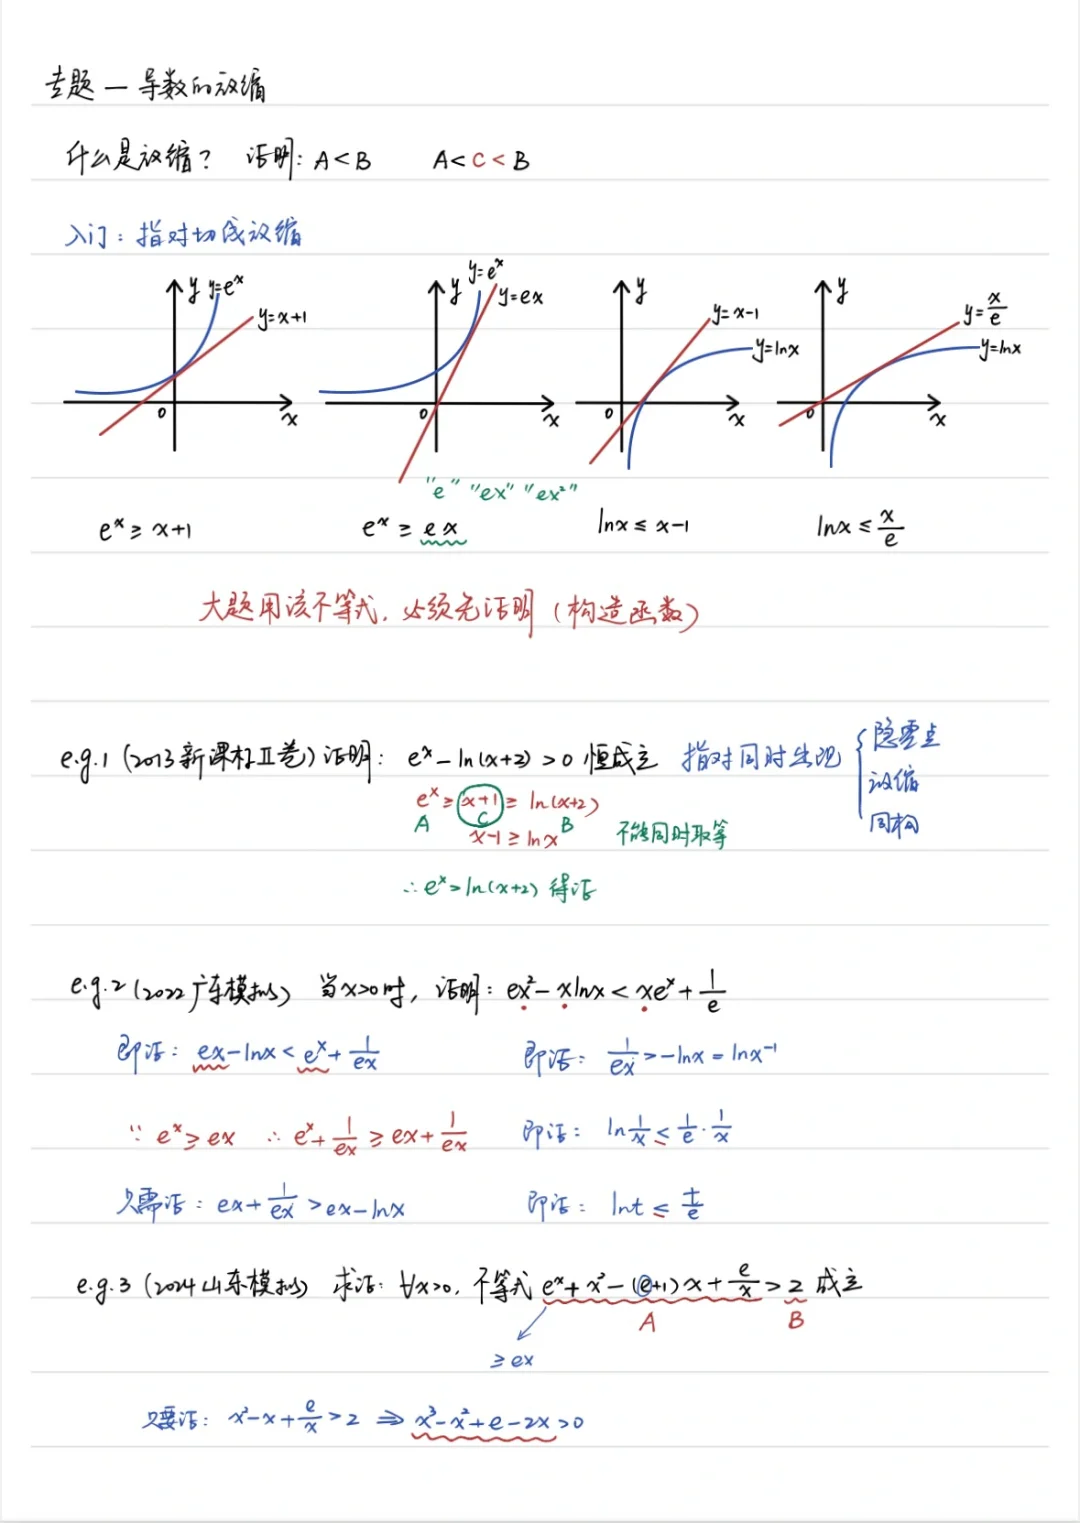 专题一 导数的放缩
什么是放缩? 证明: A<B A<C<B
入门: 指对切线放缩
y y=eˣ y=x+1 0 x
y y=eˣ y=ex 0 x
y y=x-1 y=lnx 0 x
y y=x/e y=lnx 0 x
"e" "ex" "ex²"
eˣ≥x+1 eˣ≥ex lnx≤x-1 lnx≤x/e
大题用该不等式, 必须先证明 (构造函数)
e.g.1 (2013新课标Ⅱ卷) 证明: eˣ-ln(x+2)>0 恒成立 指对同时出现 { 隐零点
放缩
同构
eˣ≥x+1≥ln(x+2)
A C B
x-1≥lnx 不能同时取等
∴eˣ>ln(x+2) 得证
e.g.2 (2022广东模拟) 当x>0时, 证明: ex²-xlnx<xeˣ+1/e
即证: ex-lnx<eˣ+1/ex 即证: 1/ex>-lnx=lnx⁻¹
∵ eˣ≥ex ∴ eˣ+1/ex≥ex+1/ex 即证: ln1/x≤1/e·1/x
只需证: ex+1/ex>ex-lnx 即证: lnt≤t/e
e.g.3 (2024山东模拟) 求证: ∀x>0, 不等式 eˣ+x²-(e+1)x+e/x>2 成立
A B
≥ex
只要证: x²-x+e/x>2 ⇒ x³-x²+e-2x>0